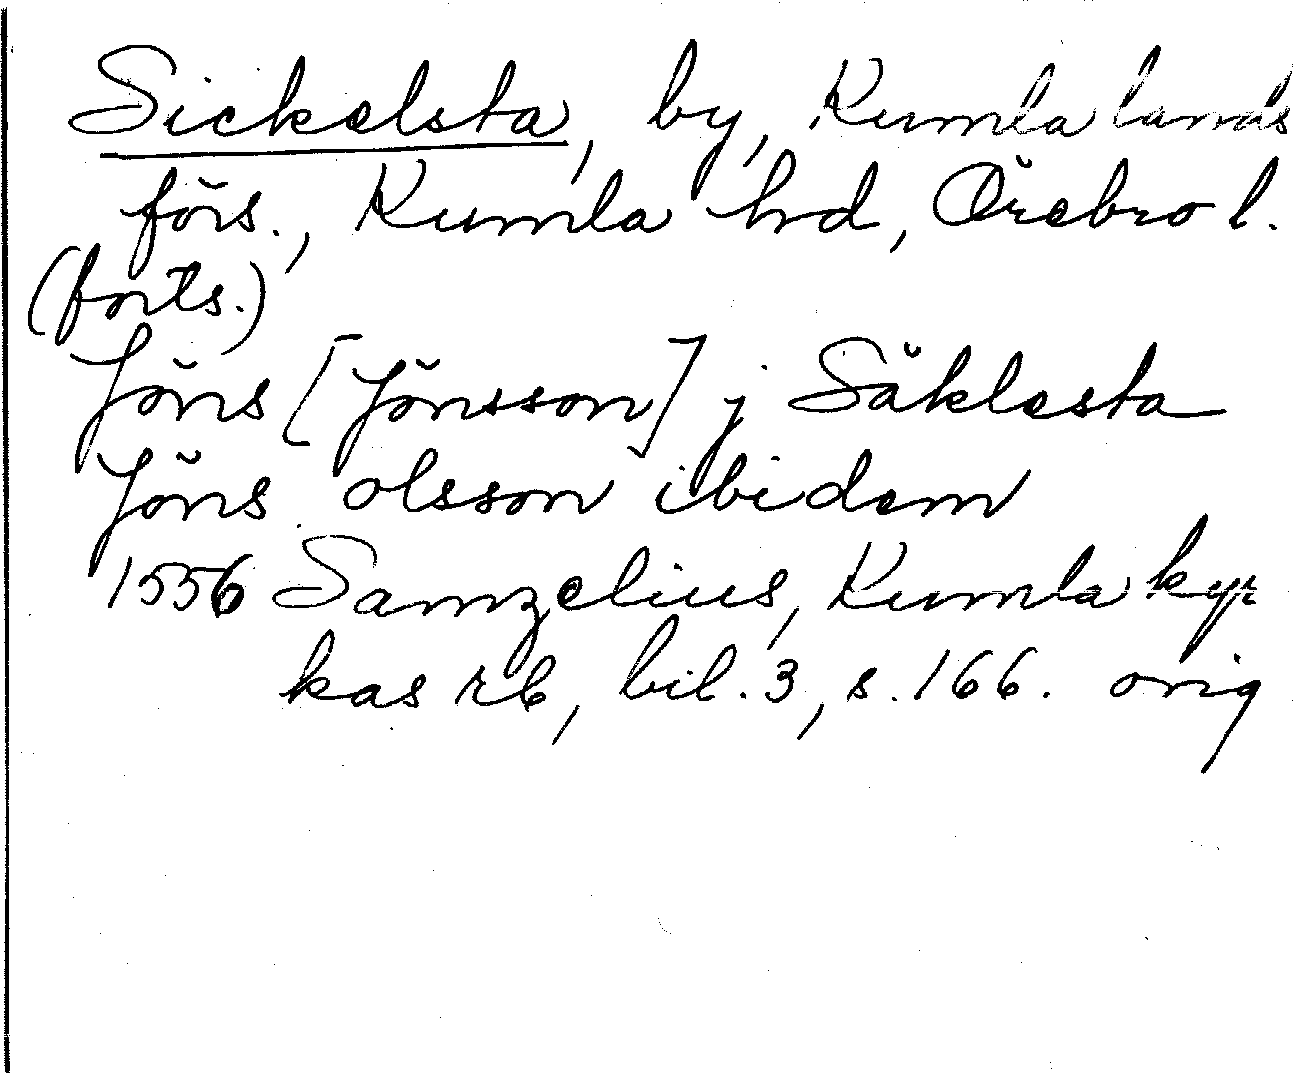 Sickelsta, by, Kumla lands
förs., Kumla hd, Örebro l.
(forts.)
Jöns [Jönsson] j Säklesta
Jöns olsson ibidem
1556 Samzelius, Kumla kyr
kas rb, bil. 3, s. 166. orig